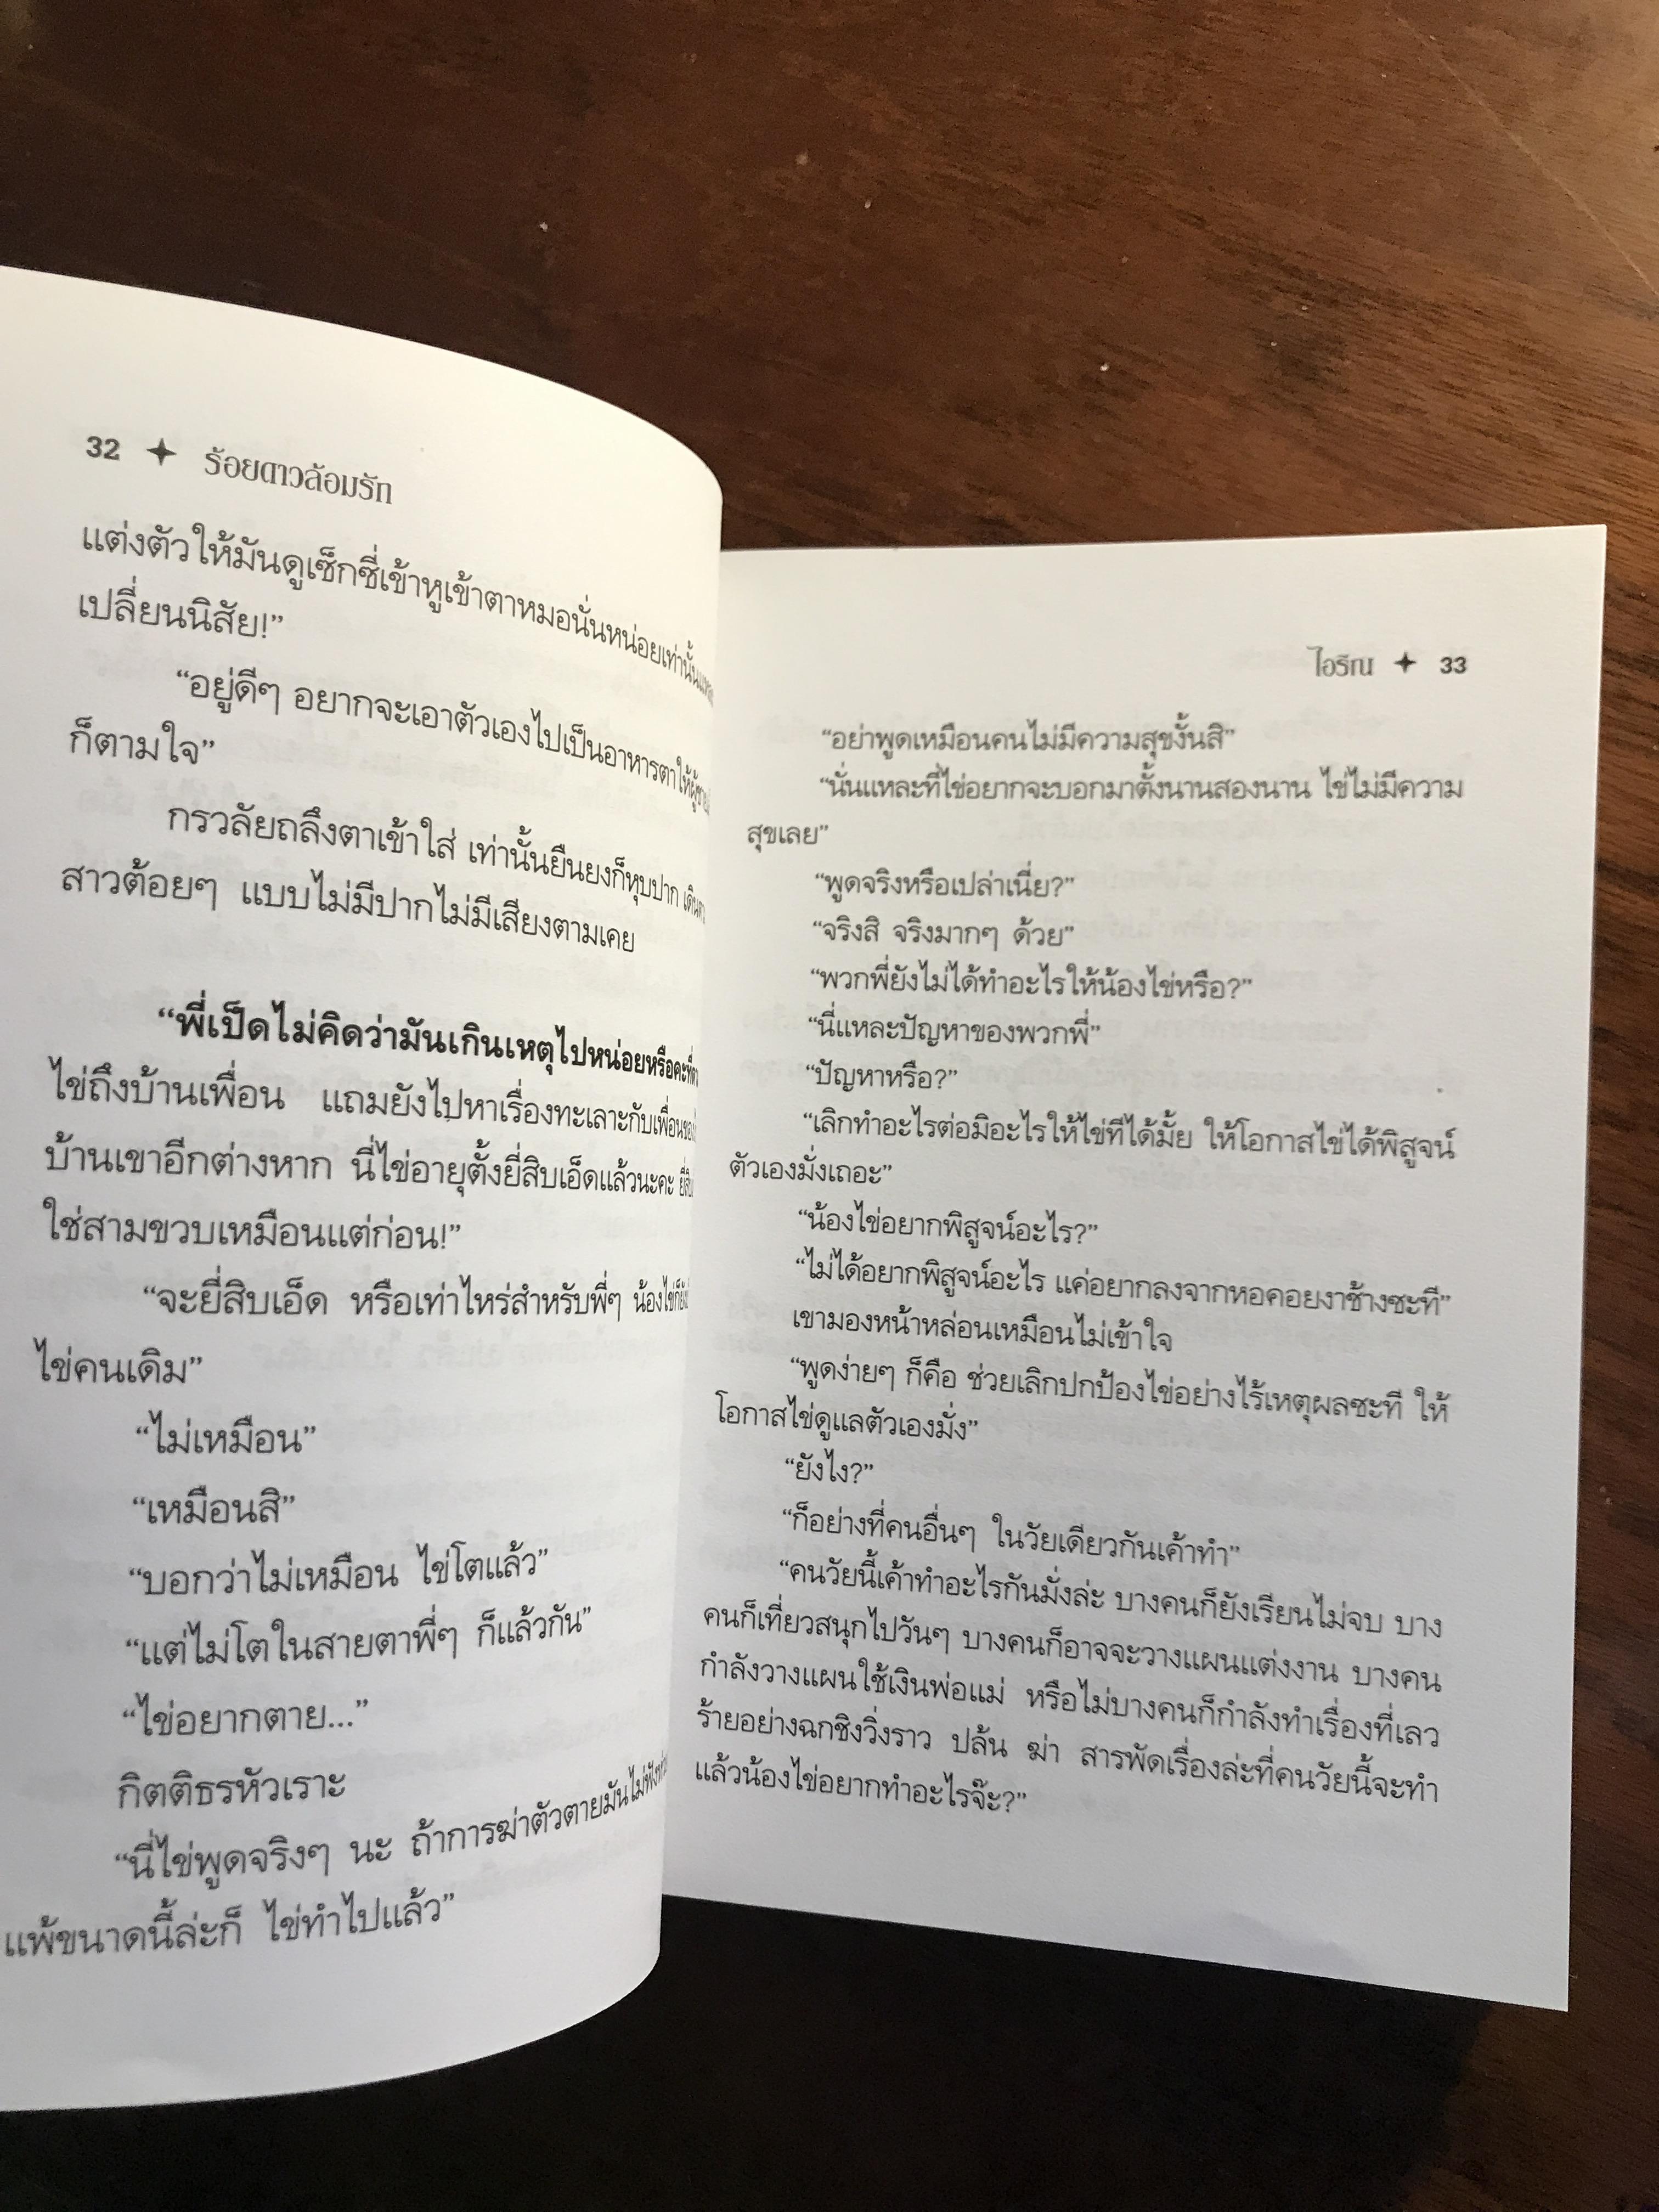 32 ✦ ร้อยดาวล้อมรัก
แต่งตัวให้มันดูเซ็กซี่เข้าหูเข้าตาหมอนั่นหน่อยเท่านั้น
เปลี่ยนนิสัย!”
“อยู่ดีๆ อยากจะเอาตัวเองไปเป็นอาหารตาให้
ก็ตามใจ”
กรวลัยถลึงตาเข้าใส่ เท่านั้นยืนยงก็หุบปาก
สาวต้อยๆ แบบไม่มีปากไม่มีเสียงตามเคย
“พี่เป็ดไม่คิดว่ามันเกินเหตุไปหน่อยหรือคะ
ไข่ถึงบ้านเพื่อน แถมยังไปหาเรื่องทะเลาะกับเพื่อน
บ้านเขาอีกต่างหาก นี่ไข่อายุตั้งยี่สิบเอ็ดแล้วนะคะ
ใช่สามขวบเหมือนแต่ก่อน!”
“จะยี่สิบเอ็ด หรือเท่าไหร่สำหรับพี่ๆ น้องไข่
ไข่คนเดิม”
“ไม่เหมือน”
“เหมือนสิ”
“บอกว่าไม่เหมือน ไข่โตแล้ว”
“แต่ไม่โตในสายตาพี่ๆ ก็แล้วกัน”
“ไข่อยากตาย...”
กิตติธรหัวเราะ
“นี่ไข่พูดจริงๆ นะ ถ้าการฆ่าตัวตายมันไม่
แพ้ขนาดนี้ล่ะก็ ไข่ทำไปแล้ว”
ไอริณ ✦ 33
“อย่าพูดเหมือนคนไม่มีความสุขงั้นสิ”
“นั่นแหละที่ไข่อยากจะบอกมาตั้งนานสองนาน ไข่ไม่มีความ
สุขเลย”
“พูดจริงหรือเปล่าเนี่ย?”
“จริงสิ จริงมากๆ ด้วย”
“พวกพี่ยังไม่ได้ทำอะไรให้น้องไข่หรือ?”
“นี่แหละปัญหาของพวกพี่”
“ปัญหาหรือ?”
“เลิกทำอะไรต่อมิอะไรให้ไข่ทีได้มั้ย ให้โอกาสไข่ได้พิสูจน์
ตัวเองมั่งเถอะ”
“น้องไข่อยากพิสูจน์อะไร?”
“ไม่ได้อยากพิสูจน์อะไร แค่อยากลงจากหอคอยงาช้างซะที”
เขามองหน้าหล่อนเหมือนไม่เข้าใจ
“พูดง่ายๆ ก็คือ ช่วยเลิกปกป้องไข่อย่างไร้เหตุผลซะที ให้
โอกาสไข่ดูแลตัวเองมั่ง”
“ยังไง?”
“ก็อย่างที่คนอื่นๆ ในวัยเดียวกันเค้าทำ”
“คนวัยนี้เค้าทำอะไรกันมั่งล่ะ บางคนก็ยังเรียนไม่จบ บาง
คนก็เที่ยวสนุกไปวันๆ บางคนก็อาจจะวางแผนแต่งงาน บางคน
กำลังวางแผนใช้เงินพ่อแม่ หรือไม่บางคนก็กำลังทำเรื่องที่เลว
ร้ายอย่างฉกชิงวิ่งราว ปล้น ฆ่า สารพัดเรื่องล่ะที่คนวัยนี้จะทำ
แล้วน้องไข่อยากทำอะไรจ๊ะ?”